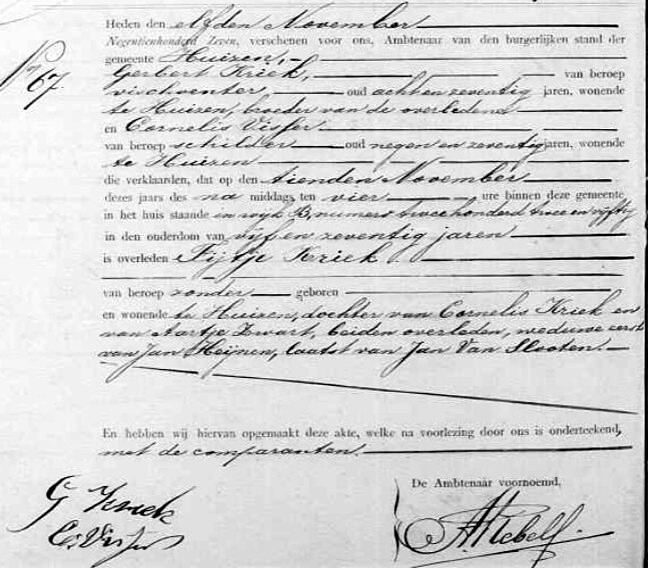 Heden den elfden November
Negentienhonderd Zeven, verschenen voor ons, Ambtenaar van den burgerlijken stand der
gemeente Huizen,
No 67.
Gerbert Kriek, van beroep
vischventer, oud acht en zeventig jaren, wonende
te Huizen, broeder van de overledene
en Cornelis Visser
van beroep schilder oud negen en zeventig jaren, wonende
te Huizen
die verklaarden, dat op den tienden November
dezes jaars des na middags ten vier ure binnen deze gemeente
in het huis staande in wijk B, numero tweehonderd twee en vijftig
in den ouderdom van vijf en zeventig jaren
is overleden Fijtje Kriek
van beroep zonder geboren
en wonende te Huizen, dochter van Cornelis Kriek en
van Aartje Zwart, beiden overleden, weduwe eerst
van Jan Heijnen, laatst van Jan Van Slooten.
En hebben wij hiervan opgemaakt deze akte, welke na voorlezing door ons is onderteekend,
met de comparanten.
De Ambtenaar voornoemd,
G Kriek
C. Visser